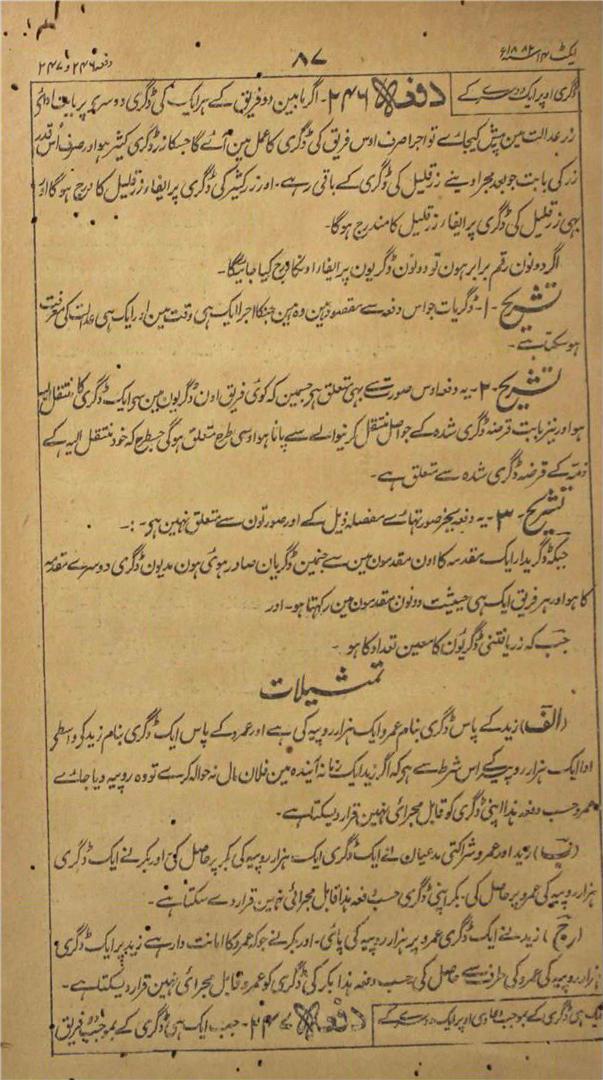 ایکٹ ۱۴ سنہ ۱۸۸۲ء ۸۷ دفعہ ۲۴۶ و ۲۴۷
ڈگری اوپر ایک دوسرے کے دفعہ ۲۴۶ - اگر مابین دو فریق کے ہر ایک کی ڈگری دوسرے پر بابت ادائی
زر عدالت مین پیش کیجاے تو اجرا صرف اوس فریق کی ڈگری کا عمل مین آے گا جسکا زر ڈگری کثیر ہو اور صرف اُس قدر
زر کی بابت جو بعد مجرا دینے زر قلیل کی ڈگری کے باقی رہے - اور زر کثیر کی ڈگری پر ایفار زر قلیل کا درج ہوگا اور
یہی زر قلیل کی ڈگری پر ایفار زر قلیل کا مندرج ہوگا -
اگر دونون رقم برابر ہون تو دونون ڈگریون پر ایفار اونکا درج کیا جائیگا -
تشریح - ۱ - ڈگریات جو اس دفعہ سے مقصود ہین وہ ہین جنکا اجرا ایک ہی وقت مین اور ایک ہی عدالت کی معرفت
ہو سکتا ہے -
تشریح - ۲ - یہ دفعہ اوس صورت سے بہی متعلق ہے جسمین کہ کوئی فریق اون ڈگریون مین سے ایک ڈگری کا منتقل الیہ
ہو اور نیز بابت قرضہ ڈگری شدہ کے جو اصل منتقل کرنیوالے سے پانا ہو اوسی طرح متعلق ہوگی جسطرح کہ خود منتقل الیہ کے
ذمہ کے قرضہ ڈگری شدہ سے متعلق ہے -
تشریح - ۳ - یہ دفعہ بجز صورتہاے مفصلہ ذیل کے اور صورتون سے متعلق نہین ہے - : -
جبکہ ڈگریدار ایک مقدمہ کا اون مقدمون مین سے جنمین ڈگریان صادر ہوئی ہون مدیون ڈگری دوسرے مقدمہ
کا ہو اور ہر فریق ایک ہی حیثیت دونون مقدمون مین رکھتا ہو - اور
جب کہ زر یافتنی ڈگریون کا معین تعداد کا ہو -
تمثیلات
(الف) زید کے پاس ڈگری بنام عمرو ایک ہزار روپیہ کی ہے اور عمرو کے پاس ایک ڈگری بنام زید کے واسطے
ادا ایک ہزار روپیہ کے اس شرط سے ہے کہ اگر زید ایک زمانہ آیندہ مین فلان مال نہ حوالہ کرے تو وہ روپیہ دیا جاے
عمرو حسب دفعہ ہذا اپنی ڈگری کو قابل مجرائی نہین قرار دیسکتا ہے -
(ب) زید اور عمرو شراکتی مدعیان نے ایک ڈگری ایک ہزار روپیہ کی بکر پر حاصل کی اور بکر نے ایک ڈگری
ہزار روپیہ کی عمرو پر حاصل کی - بکر اپنی ڈگری حسب دفعہ ہذا قابل مجرائی نہین قرار دے سکتا ہے -
(ج) زید نے ایک ڈگری عمرو پر ہزار روپیہ کی پائی - اور بکر نے جو کہ عمرو کا امانت دار ہے زید پر ایک ڈگری
ہزار روپیہ کی عمرو کی طرف سے حاصل کی حسب دفعہ ہذا بکر کی ڈگری کو عمرو قابل مجرائی نہین قرار دیسکتا ہے -
ایک ہی ڈگری کے بموجب دعاوی اوپر ایک دوسرے کے دفعہ ۲۴۷ - جب ایک ہی ڈگری کے بموجب دو فریق